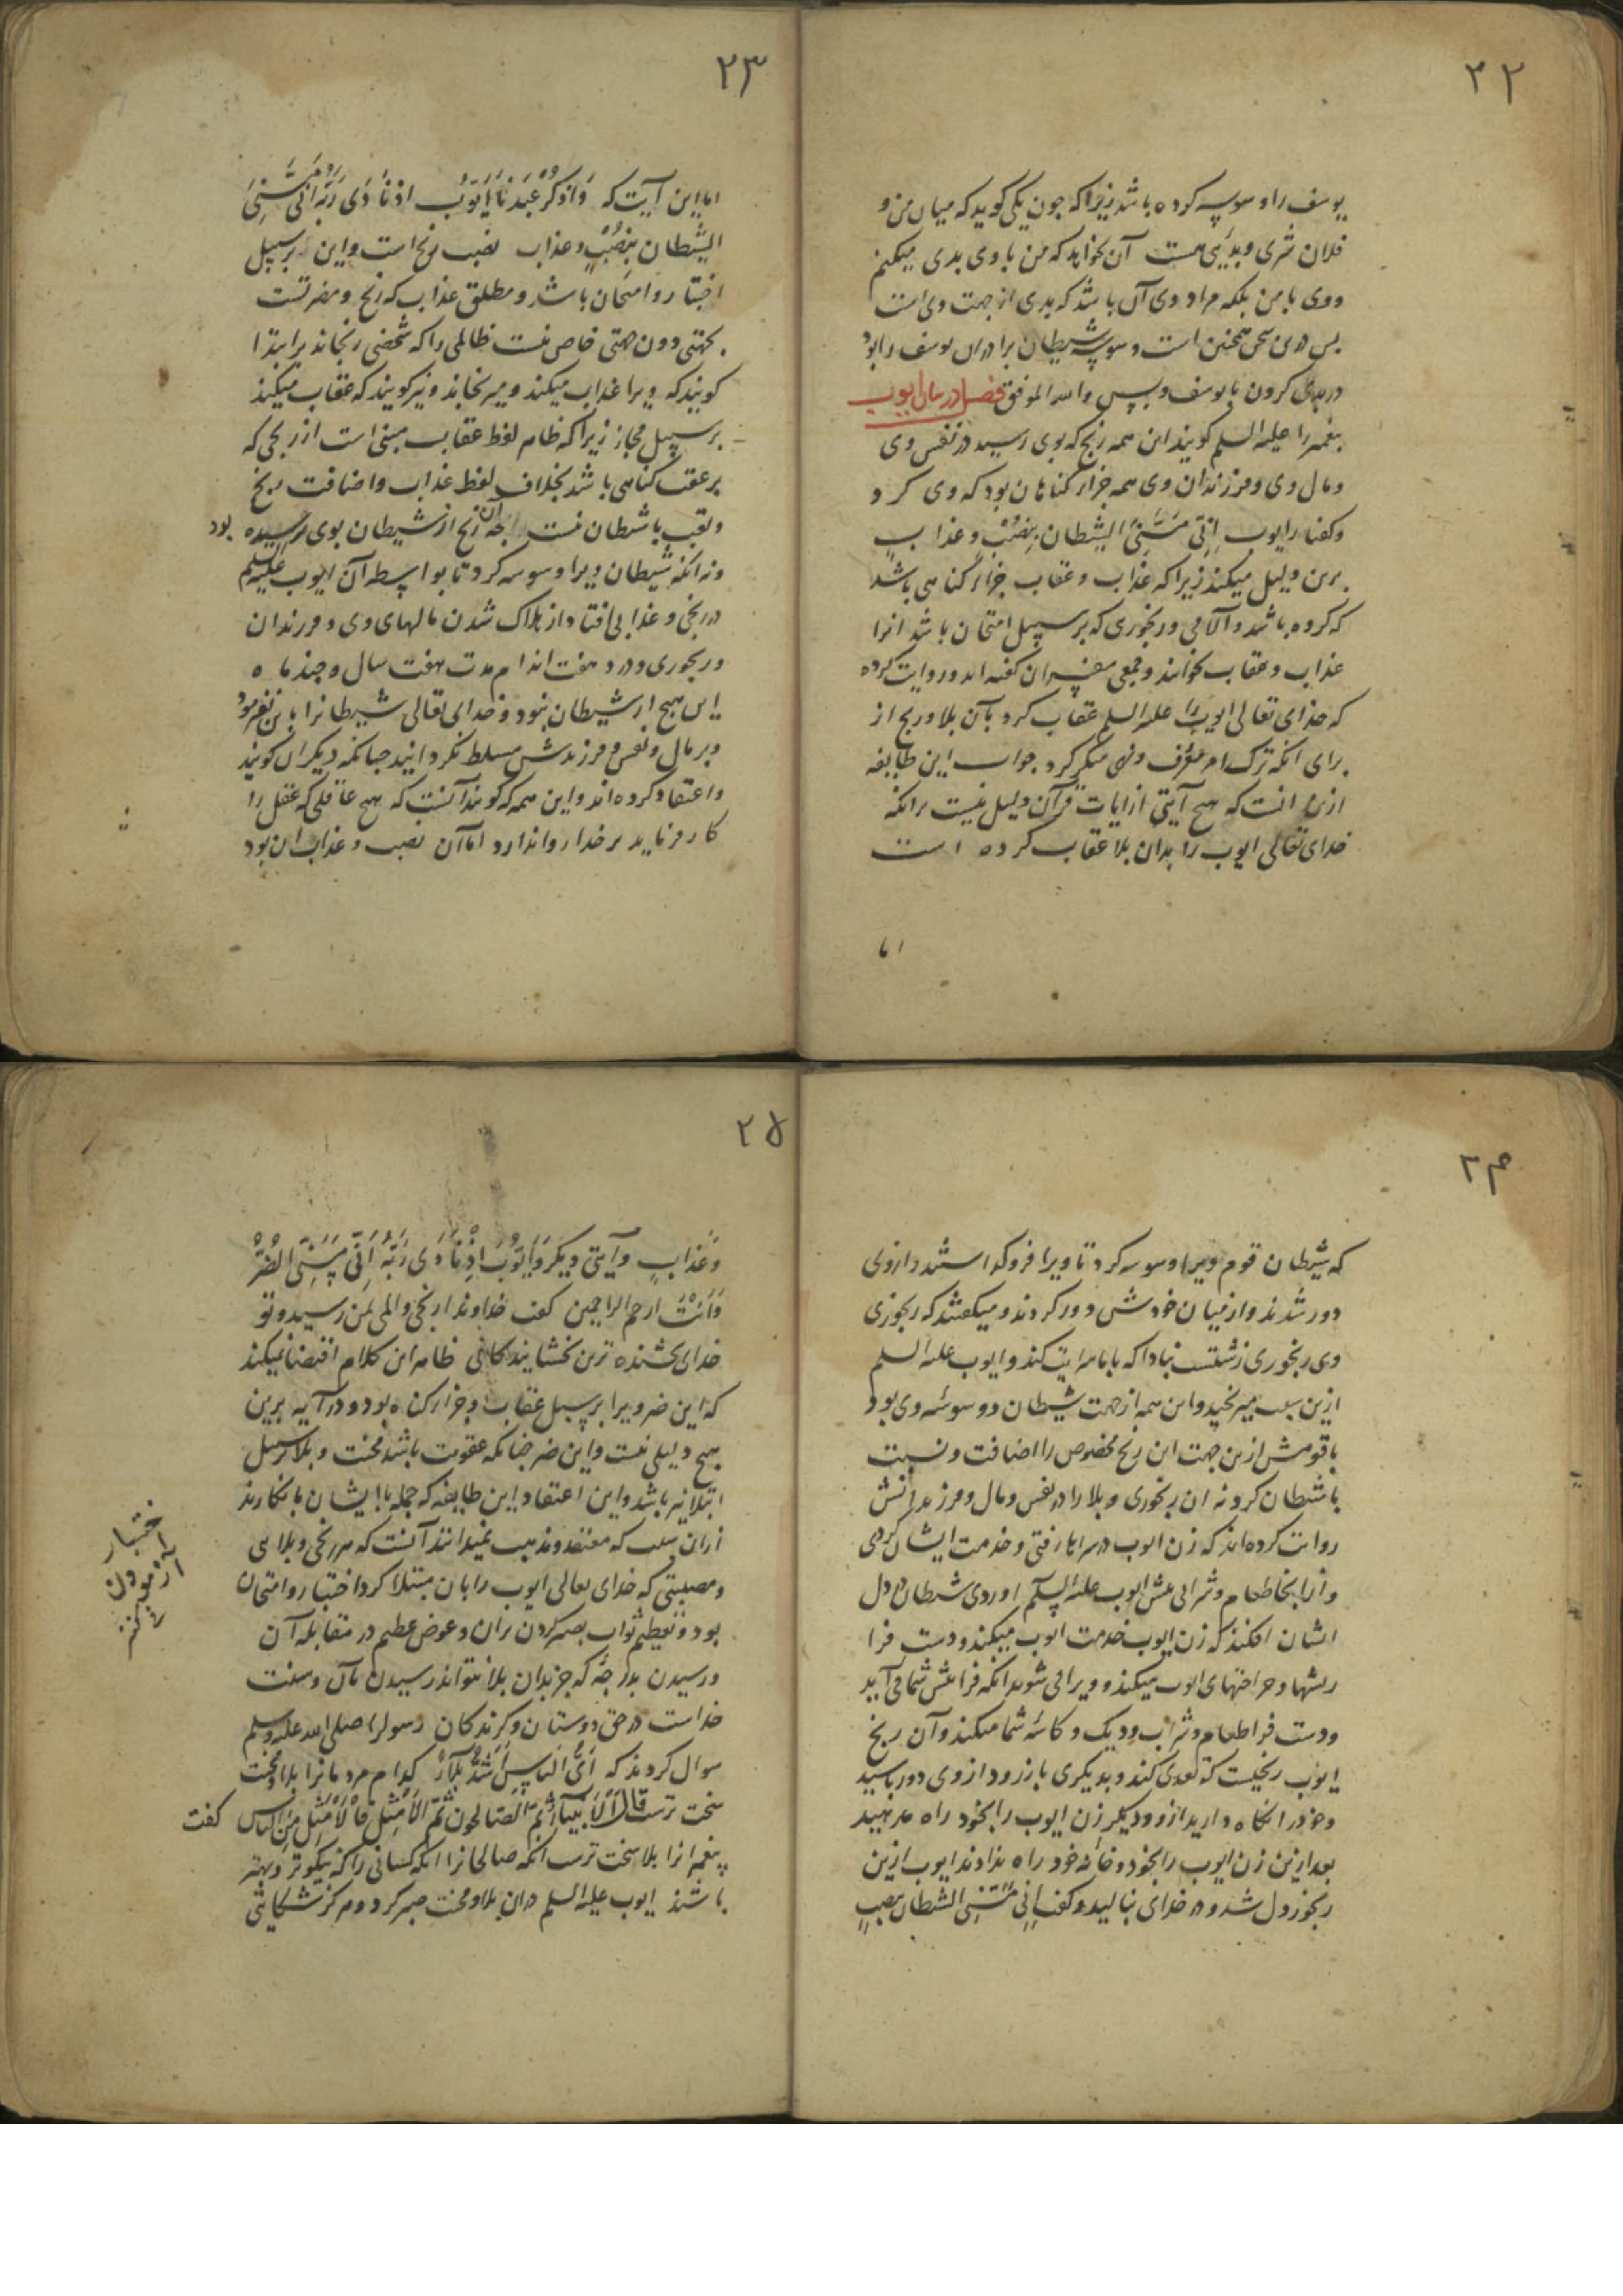 ٢٢
یوسف را وسوسه کرده باشد زیرا که جون یکی کوید که میان من و
فلان شری و بدیی هست آن نخواهد که من با وی بدی میکنم
و وی با من بلکه مراد وی آن باشد که بدی از جهت وی است
بس درین سخن همجنین است وسوسه شیطان برادران یوسف را بود
در بدی کردن با یوسف و بس والله الموفق فصل در بیان ایوب
بیغمبر را علیه السلم کویند این همه رنج که بوی رسید در نفس وی
و مال وی و فرزندان وی همه جزاء کناهان بود که وی کرد
و کفتار ایوب اِنّی مَسَّنِیَ الشیطان بِنُصْبٍ و عذابٍ
برین دلیل میکند زیرا که عذاب و عقاب جزاء کناهی باشد
که کرده باشد و آلامی و رنجوری که بر سبیل امتحان باشد انرا
عذاب و عقاب نخوانند و جمعی مفسران کفته اند و روایت کرده
که خدای تعالی ایوب را علیه السلم عقاب کرد بآن بلا و رنج از
برای انکه ترک امر معرف و نهی منکر کرد جواب این طایفه
ازین انست که هیج آیتی از ایات قرآن دلیل نیست برانکه
خدای تعالی ایوب را بدان بلا عقاب کرده است
اما
٢٣
اما این آیت که وَاذکُرْ عَبدَنا اَیّوبَ اذ نادَی رَبَّهُ اَنّی مَسَّنِیَ
الشیطان بِنُصْبٍ و عذاب نصب رنج است و این بر سبیل
اختبار و امتحان باشد و مطلق عذاب که رنج و مضرتست
بجهتی دون جهتی خاص نیست ظالمی را که شخصی رنجاند بر ابتدا
کویند که ویرا عذاب میکند و میرنجاند و نیز کویند که عقاب میکند
بر سبیل مجاز زیرا که ظاهر لفظ عقاب مبنی است از رنجی که
بر عقب کناهی باشد بخلاف لفظ عذاب و اضافت رنج
و تعب با شیطان نیست آن رنج از شیطان بوی رسیده بود
و نه انکه شیطان ویرا وسوسه کرد تا بواسطه آن ایوب علیه السلم
در رنجی و عذابی افتاد از هلاک شدن مالهای وی و فرزندان
و رنجوری و درد هفت اندام مدت هفت سال و جند ماه
این هیج از شیطان نبود و خدای تعالی شیطانرا باین نفرمود
و بر مال و نفس و فرزندش مسلط نکردانید جنانکه دیکران کویند
و اعتقاد کرده اند و این همه که کویند آنست که هیج عاقلی که عقل را
کار فرماید بر خدا روا ندارد اما آن نصب و عذاب ان بود
٢٤
که شیطان قوم ویرا وسوسه کرد تا ویرا فرو کذاشتند و از وی
دور شدند و از میان خودش دور کردند و میکفتند که رنجوری
وی رنجوری زشتست نبادا که با ما سرایت کند و ایوب علیه السلم
ازین سبب میرنجید و این همه از جهت شیطان و وسوسه وی بود
با قومش ازین جهت این رنج مخصوص را اضافت و نسبت
با شیطان کرد نه ان رنجوری و بلا را در نفس و مال و فرزندانش
روایت کرده اند که زن ایوب در سراها رفتی و خدمت ایشان کردی
و از انجا طعام و شرابی بیش ایوب علیه السلم اوردی شیطان در دل
ایشان افکند که زن ایوب خدمت ایوب میکند و دست فرا
ریشها و جراحتهای ایوب میکند و ویرا می شوید انکه فرا بیش شما می آید
و دست فرا طعام و شراب و دیک و کاسه شما میکند و آن رنج
ایوب رنجیست که تعدی کند و بدیکری باز رود از وی دور باشید
و خود را نکاه دارید ازو و دیکر زن ایوب را بخود راه مدهید
بعد ازین زن ایوب را بخود و خانه خود راه ندادند ایوب ازین
رنجور دل شد و در خدای بنالید و کفت اِنّی مَسَّنِیَ الشیطان بنصبٍ
٢٥
وَعَذابٍ و آیتی دیکر وَاَیّوبَ اِذْ نادَی رَبَّهُ اَنّی مَسَّنِیَ الضُّرُّ
وَاَنْتَ ارحم الراحمین کفت خداوندا رنجی و المی بمن رسید و تو
خدای بخشنده ترین بخشایندکانی ظاهر این کلام اقتضا میکند
که این ضر ویرا بر سبیل عقاب و جزاء کناه بود و در آیه برین
هیج دلیلی نیست و این ضر جنانکه عقوبت باشد محنت و بلا بر سبیل
ابتلا نیز باشد و این اعتقاد این طایفه که جمله با ایشان بانکارند
ازان سبب که معتقد و مذهب نمیدانند آنست که هر رنجی و بلایی
و مصیبتی که خدای تعالی ایوب را بان مبتلا کرد اختبار و امتحان
بود و تعظیم ثواب بصبر کردن بران و عوض عظیم در مقابله آن
و رسیدن بدرجه که جز بدان بلا نتواند رسیدن بآن و سنت
خداست در حق دوستان و کزیدکان رسول را صلی الله علیه وسلم
سوال کردند که اَیُّ الناسِ اَشَدُّ بَلاءً کدام مردمانرا بلا و محنت
سخت ترست قال اَلاَنبیاءُ ثم الصالحون ثُمَّ الاَمْثَل فَالاَمْثَل مِنَ الناس کفت
بیغمبرانرا بلا سخت ترست انکه صالحانرا انکه کسانی را که نیکوتر و بهتر
باشند ایوب علیه السلم دران بلا و محنت صبر کرد و هرکز شکایتی
اختبار
آزمودن